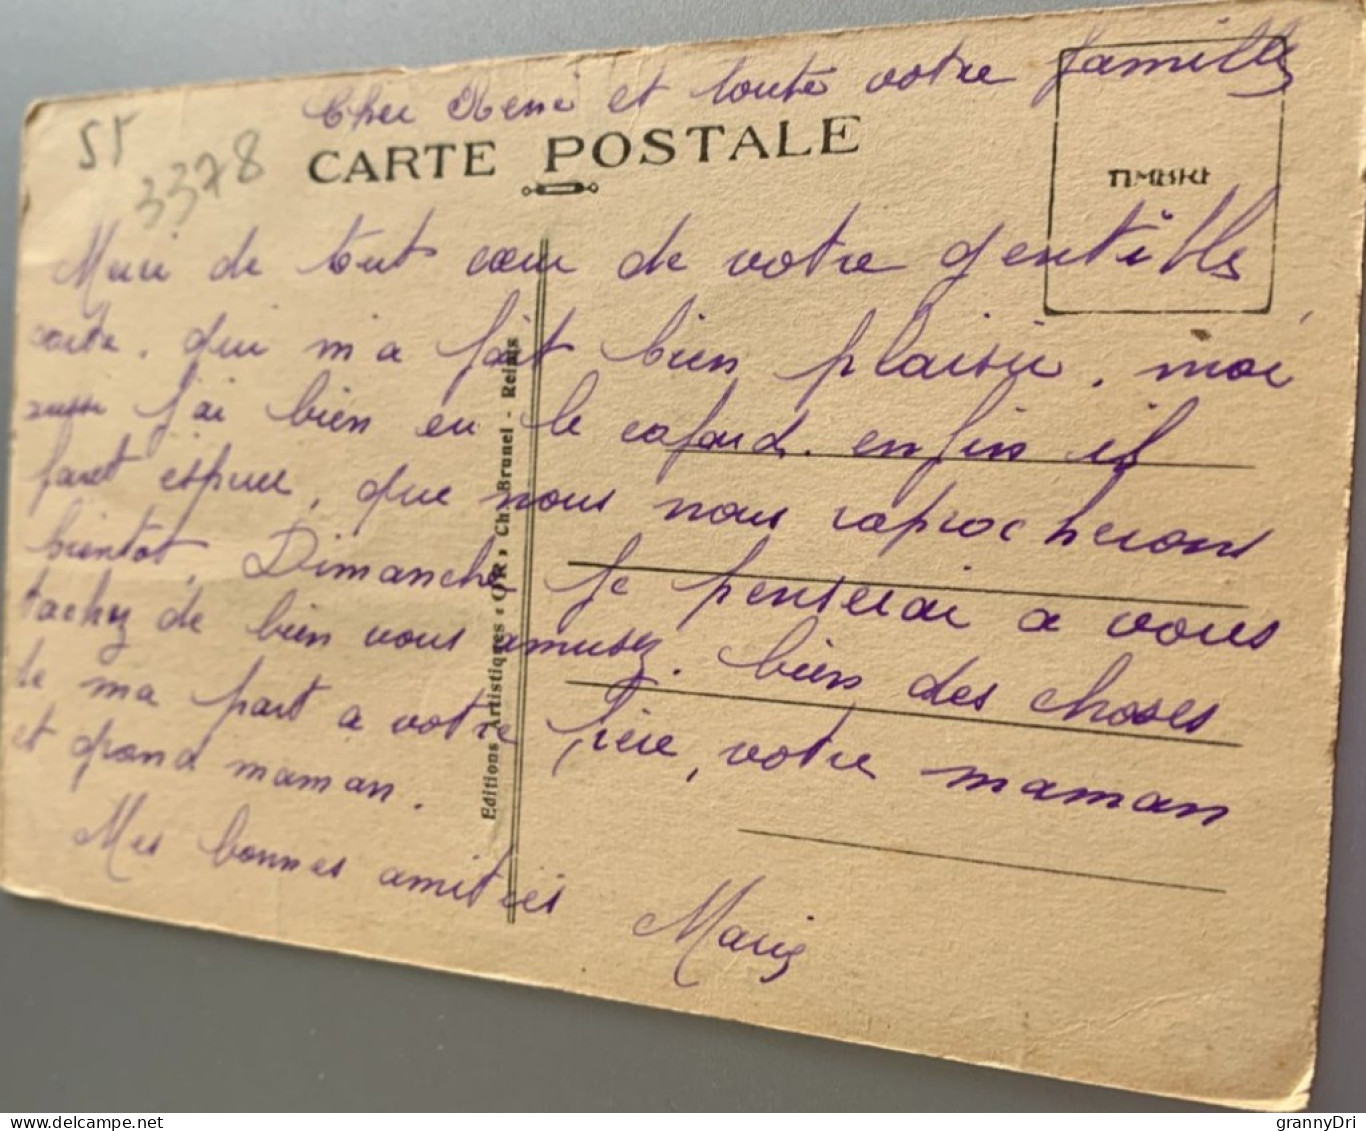 Cher René et toute votre famille
ST
3378
CARTE POSTALE
TIMBRE
Merci de tout cœur de votre gentille
carte, qui m'a fait bien plaisir, moi
aussi j'ai bien eu le cafard. enfin il
faut espérer, que nous nous raprocherons
bientot, Dimanche je penserai a vous
tachez de bien vous amusez. bien des choses
de ma part a votre frère, votre maman
et grand maman.
Mes bonnes amitiés Marie
Editions Artistiques « OR » Ch. Brunel - Reims
grannyDri